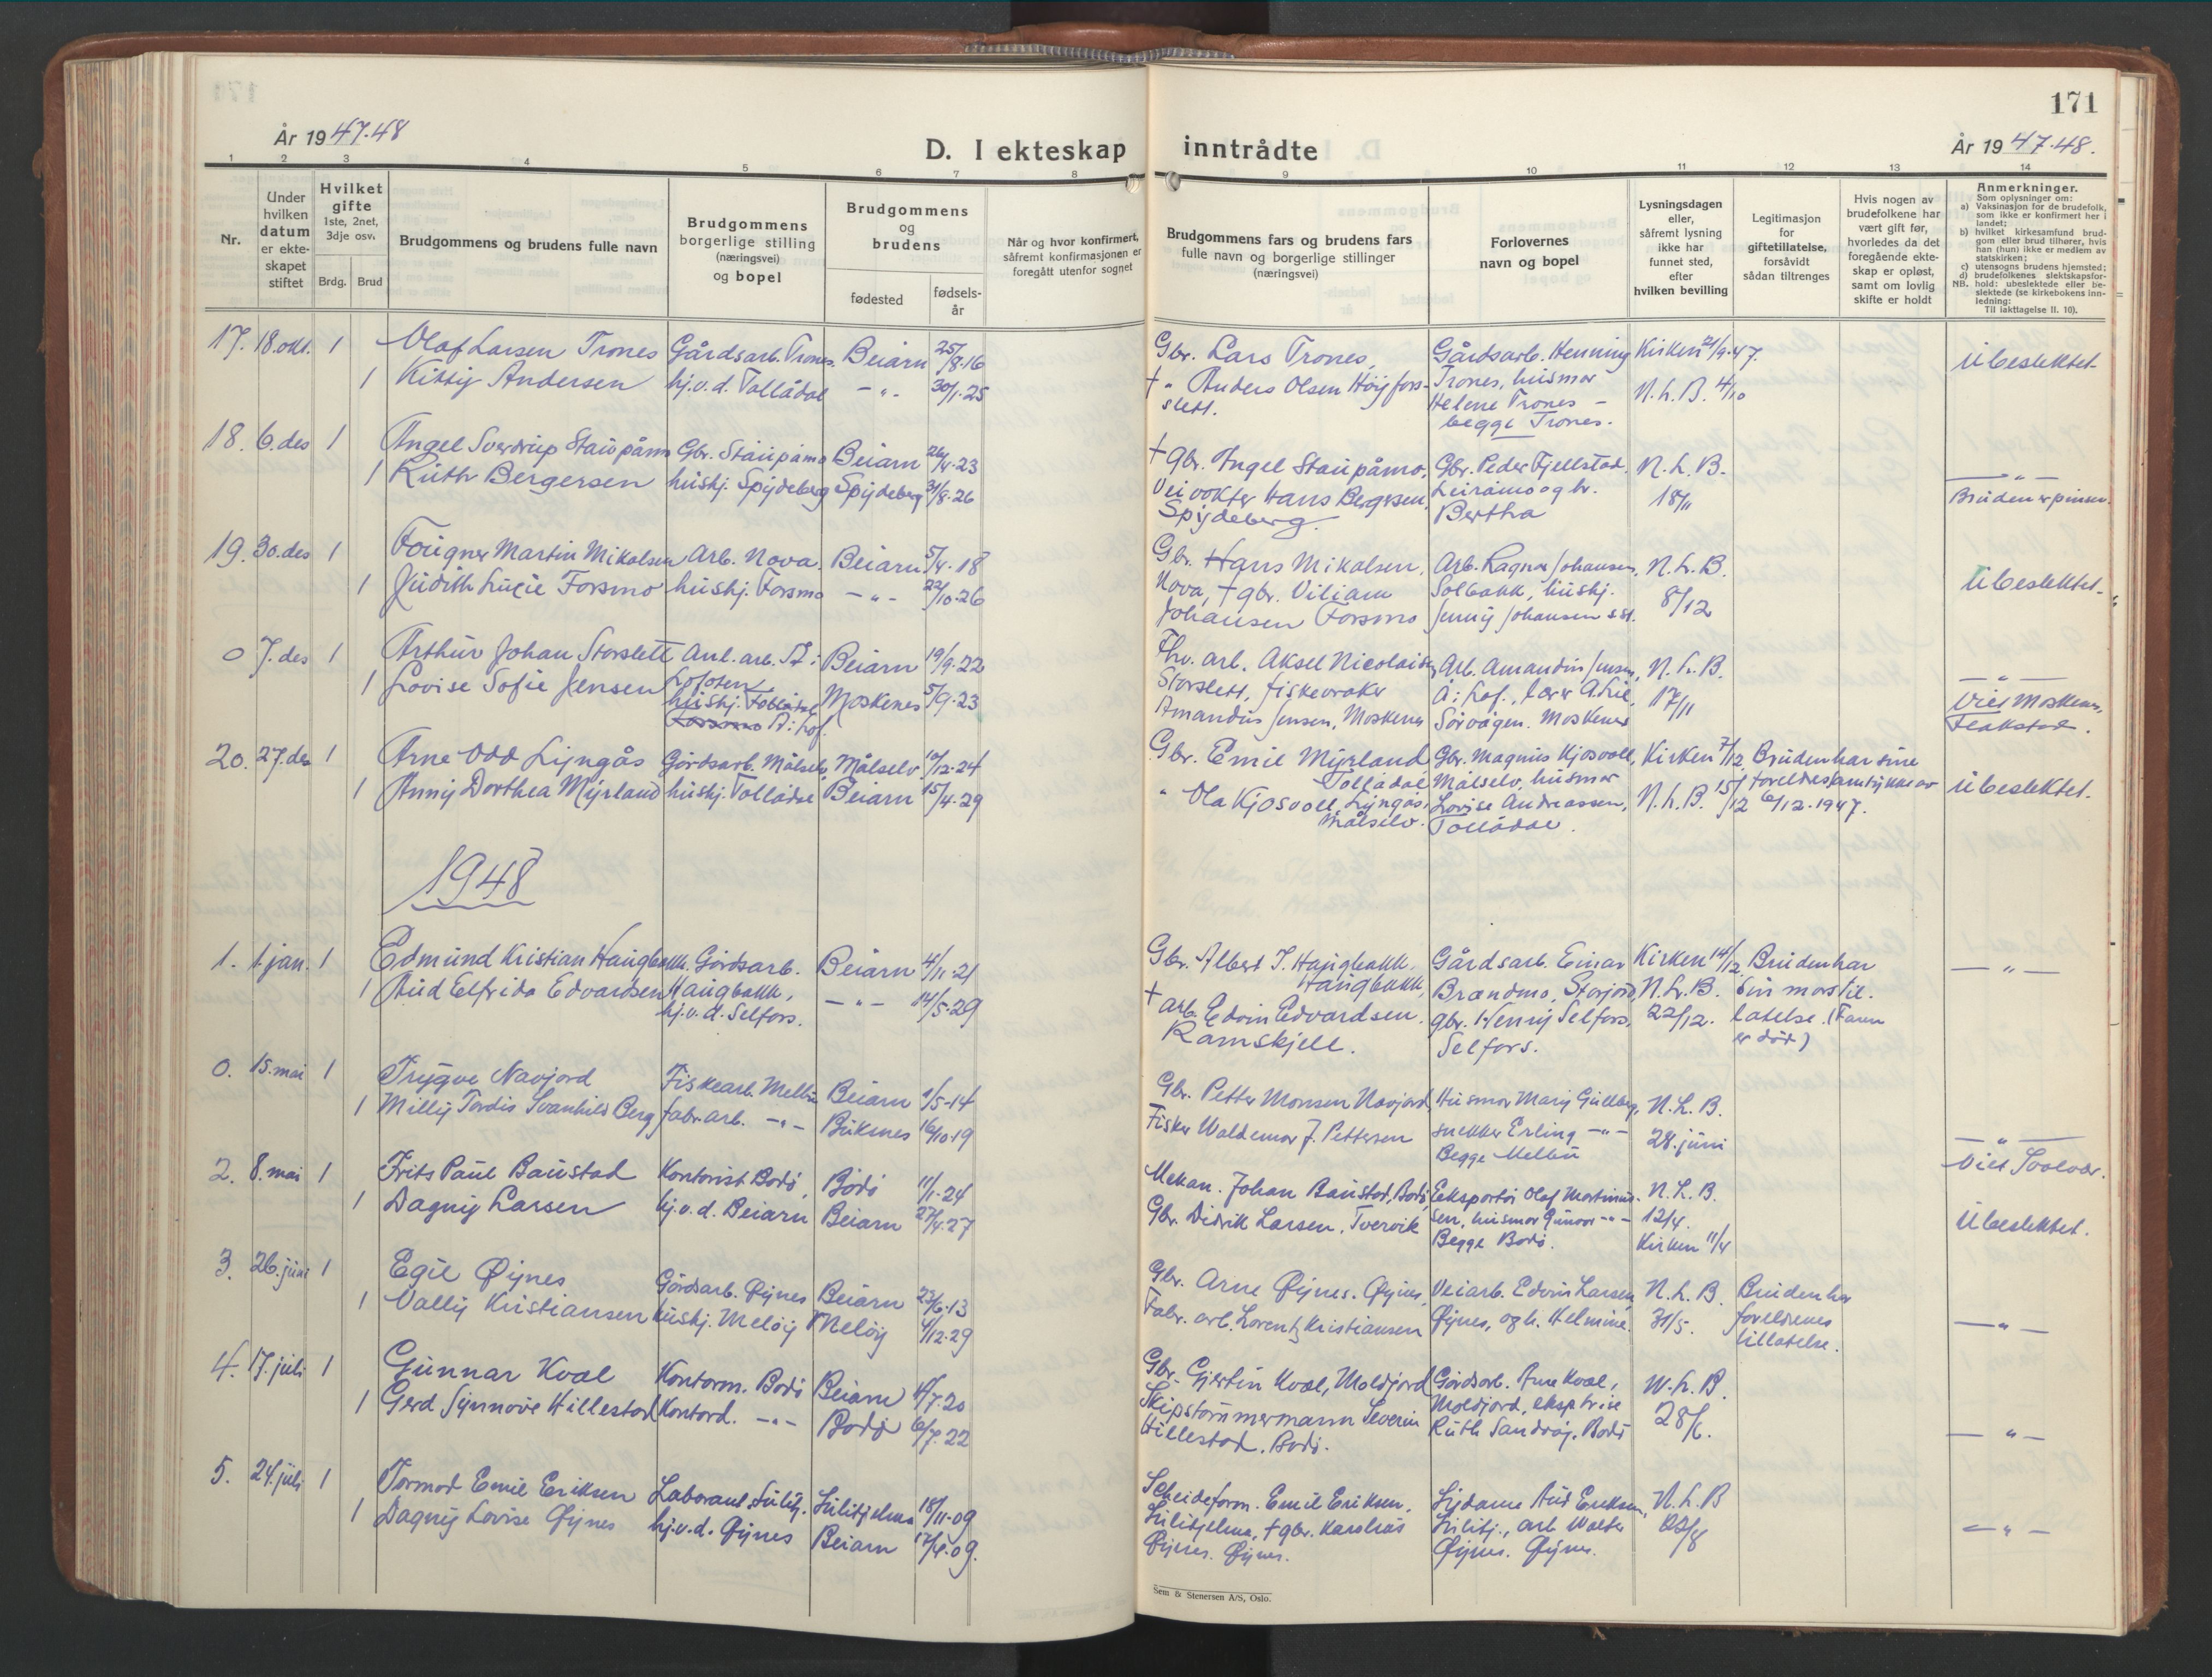 171
År 1947-48
D. I ekteskap inntrådte
År 1947-48.
1 2 3 4 5 6 7 8 9 10 11 12 13 14
Nr.
Under hvilken datum er ekteskapet stiftet
Hvilket gifte
1ste, 2net, 3dje osv.
Brdg. Brud
Brudgommens og brudens fulle navn
Brudgommens borgerlige stilling (næringsvei) og bopel
Brudgommens og brudens
fødested
fødselsår
Når og hvor konfirmert, såfremt konfirmasjonen er foregått utenfor sognet
Brudgommens fars og brudens fars fulle navn og borgerlige stillinger (næringsvei)
Forlovernes navn og bopel
Lysningsdagen eller, såfremt lysning ikke har funnet sted, efter hvilken bevilling
Legitimasjon for giftetillatelse, forsåvidt sådan tiltrenges
Hvis nogen av brudefolkene har vært gift før, hvorledes da det foregående ekteskap er opløst, samt om lovlig skifte er holdt
Anmerkninger.
Som oplysninger om:
a) Vaksinasjon for de brudefolk, som ikke er konfirmert her i landet;
b) hvilket kirkesamfund brudgom eller brud tilhører, hvis han (hun) ikke er medlem av statskirken;
c) utensogns brudens hjemsted;
d) brudefolkenes slektskapsforhold: ubeslektede eller beslektede (se kirkebokens innledning:
NB.
Til iakttagelse II. 10).
17. 18.okt. 1 Olaf Larsen Trones Gårdsarb. Trones. Beiarn 25/8-16 Gbr. Lars Trones, Gårdsarb. Henning Kirken 21/9-47. Ubeslektet
1 Kitty Andersen hj.v.d. Tollådal -"- 30/1-25 † " Anders Olsen Høyforsslett. Trones, husmor Helene Trones - begge Trones. N.L.B. 4/10
18. 6.des 1 Angel Sverdrup Staupåmo Gbr. Staupåmo Beiarn 26/4-23 † gbr. Angel Staupåmo, Gbr. Peder Fjellstad, N.L.B. -"-
1 Ruth Bergersen hushj. Spydeberg Spydeberg 31/8-26 Veivokter Hans Bergersen, Spydeberg. Leiråmo og hr. Bertha 18/11 Bruden er pinsev.
19. 30.des 1 Fougner Martin Mikalsen Arb. Nova. Beiarn 5/4-18 Gbr. Hans Mikalsen, Arb. Ragnar Johansen, N.L.B. Ubeslektet
1 Judith Lucie Forsmo hushj. Forsmo -"- 22/10-26 Nova, † gbr. Viliam Johansen Forsmo Solbakk, hushj. Jenny Johansen sst. 8/12
0 7.des 1 Arthur Johan Storslett Anl.arb. Å i Lofoten Beiarn 19/9-22 Fhv. arb. Aksel Nicolaisen Storslett, fiskevraker Arb. Amandus Jensen, Å i Lof., N.L.B. -"-
1 Lovise Sofie Jensen hushj. Å i Lof. Moskenes 5/9-23 Amandus Jensen, Moskenes Sørvågen. Moskenes 17/11 Viet Moskenes, Flakstad.
20. 27.des 1 Arne Odd Lyngås Gårdsarb. Målselv, Målselv 10/12-24 Gbr. Emil Myrland Tollådal Gbr. Magnus Kjosvoll, Målselv, husmor Kirken 7/12 Bruden har sine
1 Anny Dorthea Myrland hushj. Tollådal Beiarn 15/4-29 " Ola Kjosvoll, Lyngås, Målselv. Lovise Andreassen, Tollådal. N.L.B. 15/12 foreldres samtykke av 6/12.1947. Ubeslektet.
1948
1. 1.jan. 1 Edmund Kristian Haugbakk, Gårdsarb. Beiarn 4/11-21 Gbr. Albert J. Haugbakk, Haugbakk, Gårdsarb. Einar Kirken 14/12. Bruden har -"-
1 Aud Elfrida Edvardsen Haugbakk, hj.v.d. Selfors. -"- 14/5-29 † arb. Edvin Edvardsen, Ramskjell. Brændmo, Storjord, gbr. Henry Selfors, Selfors. N.L.B. 22/12. sin mors tillatelse. (Faren er død)
0. 15.mai 1 Trygve Navjord Fiskearb. Melbu Beiarn 1/5-14 Gbr. Petter Monsen Navjord, Husmor Mary Gullberg, N.L.B.
1 Milly Tordis Svanhild Berg fabr.arb. -"- Buksnes 16/10-19 Fisker Waldemar J. Pettersen snekker Erling -"- Begge Melbu 28.juni -"- Viet Svolvær.
2. 8.mai 1 Frits Paul Baustad Kontorist Bodø, Bodø 11/1-24 Mekan. Johan Baustad, Bodø Eksportør Olaf Martinussen, N.L.B.
1 Dagny Larsen hj.v.d. Beiarn Beiarn 27/4-27 Gbr. Didrik Larsen, Tvervik husmor Gunvor -"- Begge Bodø. 12/4. Kirken 11/4 Ubeslektet.
3. 26.juni 1 Egil Øynes Gårdsarb. Øynes Beiarn 23/6-13 Gbr. Arne Øynes. Øynes, Veiarb. Edvin Larsen N.L.B. Bruden har
1 Vally Kristiansen hushj. Meløy Meløy 4/12-29 Fabr. arb. Lorentz Kristiansen Øynes, og h. Helmine. 31/5. foreldrenes tillatelse. -"-
4. 17.juli 1 Gunnar Kvæl Kontorm. Bodø Beiarn 11/7-20 Gbr. Gjertin Kvæl, Moldjord Gårdsarb. Arne Kvæl, N.L.B.
1 Gerd Synnøve Hillestad Kontord. -"- Bodø 6/7-22 Skipstømmermann Severin Hillestad. Bodø. Moldjord, eksptrise Ruth Sandvåg. Bodø 28/6. -"-
5. 24.juli 1 Tormod Emil Eriksen Laborant. Sulitj. Sulitjelma 18/11-09 Scheideform. Emil Eriksen, Aud Eriksen, N.L.B
1 Dagny Lovise Øynes hj.v.d. Øynes Beiarn 17/4-09. Sulitjelma, † gbr. Karolius Øynes. Øynes. Sulitj., arb Walter Øynes. Øynes. -"-
Sem & Stenersen A/S, Oslo.